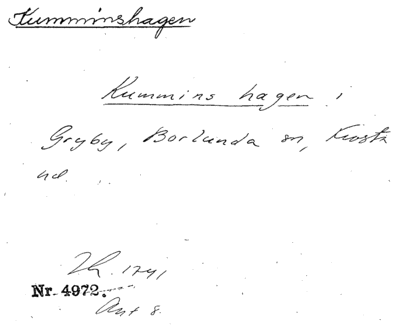 Kumminshagen
Kummins hagen i
Gryby, Borlunda sn, Frosta
hd.
Lh. 1741
Nr. 4972.
Akt 8.